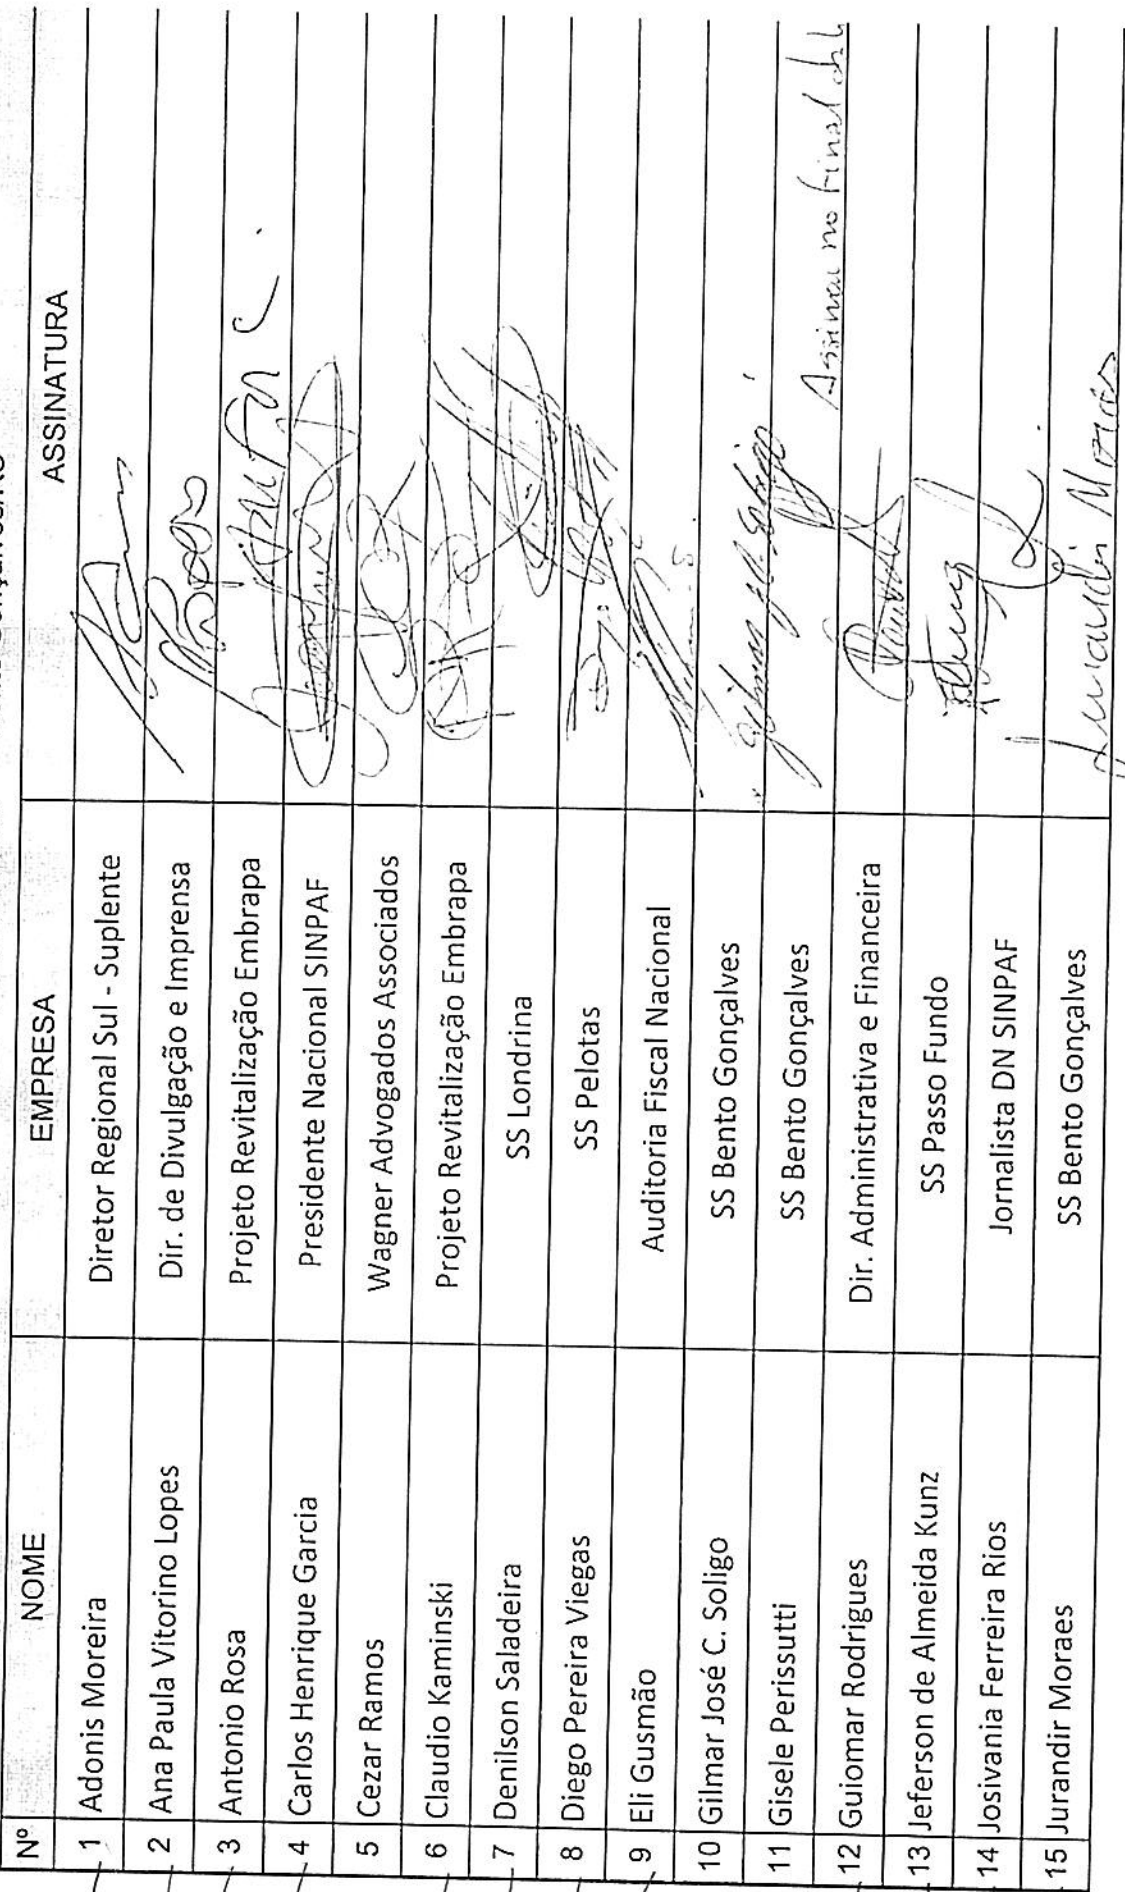 Nº NOME EMPRESA ASSINATURA
1 Adonis Moreira Diretor Regional Sul - Suplente
2 Ana Paula Vitorino Lopes Dir. de Divulgação e Imprensa
3 Antonio Rosa Projeto Revitalização Embrapa
4 Carlos Henrique Garcia Presidente Nacional SINPAF
5 Cezar Ramos Wagner Advogados Associados
6 Claudio Kaminski Projeto Revitalização Embrapa
7 Denilson Saladeira SS Londrina
8 Diego Pereira Viegas SS Pelotas
9 Eli Gusmão Auditoria Fiscal Nacional
10 Gilmar José C. Soligo SS Bento Gonçalves
11 Gisele Perissutti SS Bento Gonçalves Assinou no final
12 Guiomar Rodrigues Dir. Administrativa e Financeira
13 Jeferson de Almeida Kunz SS Passo Fundo
14 Josivania Ferreira Rios Jornalista DN SINPAF
15 Jurandir Moraes SS Bento Gonçalves Jurandir Moraes